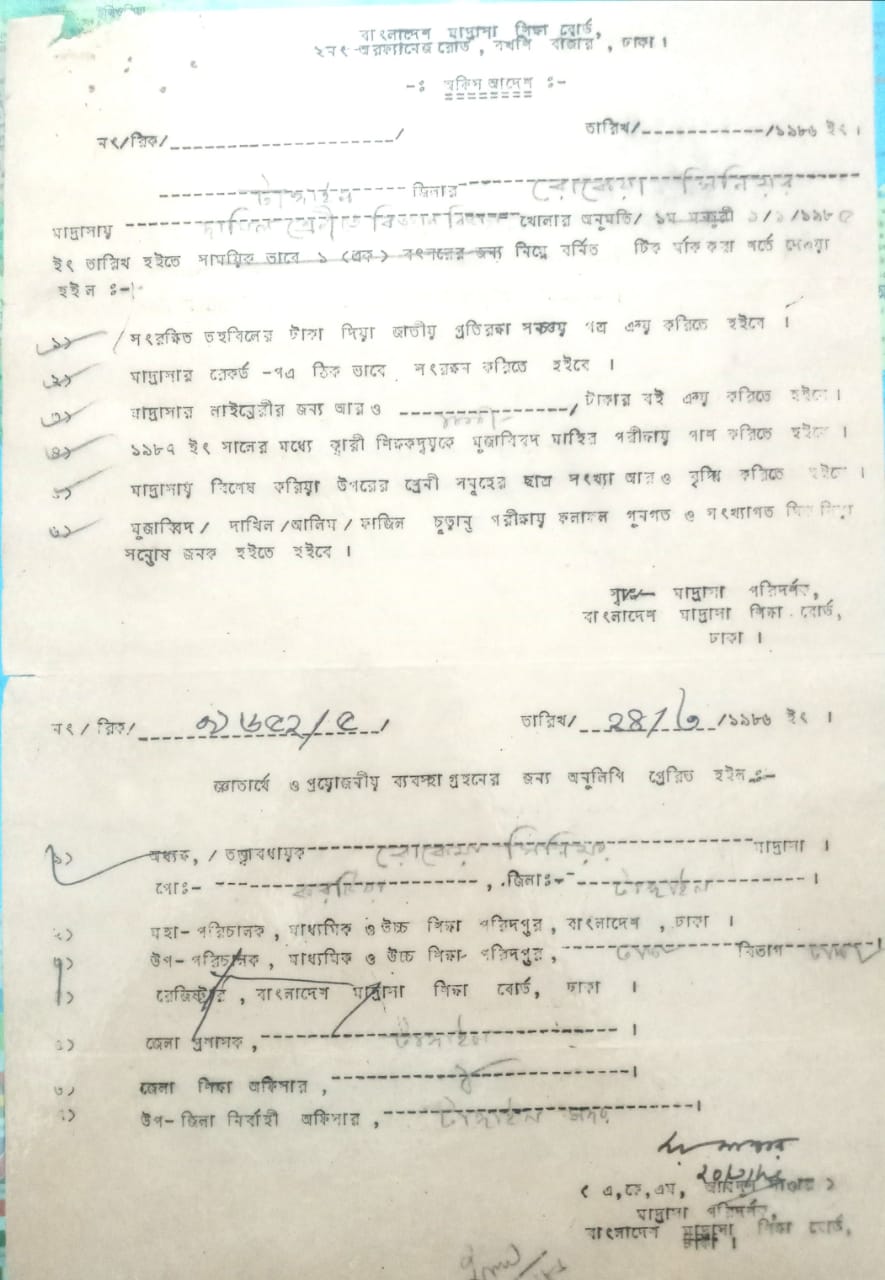 বাংলাদেশ মাদ্রাসা শিক্ষা বোর্ড,
২নং-অরফ্যানেজ রোড, বখশি বাজার, ঢাকা।
-: অফিস আদেশ :-
নং/রিক/ / তারিখ/ /১৯৮৬ ইং।
টাঙ্গাইল জিলার রোকেয়া সিনিয়র
মাদ্রাসায় দাখিল শ্রেণীতে বিজ্ঞান বিভাগ খোলার অনুমতি/ ১ম মঞ্জুরী ১/১/১৯৮৫
ইং তারিখ হইতে সাময়িক ভাবে ১ (এক) বৎসরের জন্য নিম্নে বর্নিত টিক মার্ক করা শর্তে দেওয়া
হইল :-
১) সংরক্ষিত তহবিলের টাকা দিয়া জাতীয় প্রতিরক্ষা সঞ্চয় পত্র ক্রয় করিতে হইবে ।
২) মাদ্রাসার রেকর্ড -পত্র ঠিক ভাবে সংরক্ষন করিতে হইবে ।
৩) মাদ্রাসার লাইব্রেরীর জন্য আরও / টাকার বই ক্রয় করিতে হইবে ।
৪) ১৯৮৭ ইং সালের মধ্যে ক্বারী শিক্ষকদ্বয়কে মুজাব্বিদ মাহির পরীক্ষায় পাশ করিতে হইবে ।
৫) মাদ্রাসায় বিশেষ করিয়া উপরের শ্রেনী সমূহের ছাত্র সংখ্যা আরও বৃদ্ধি করিতে হইবে ।
৬) মুজাব্বিদ/ দাখিল /আলিম/ ফাজিল চূড়ান্ত পরীক্ষায় ফলাফল গুনগত ও সংখ্যাগত দিক দিয়া
সন্তোষ জনক হইতে হইবে ।
স্বাঃ- মাদ্রাসা পরিদর্শক,
বাংলাদেশ মাদ্রাসা শিক্ষা বোর্ড,
ঢাকা ।
নং/ রিক/ ৯৬৫২/৫ / তারিখ/ ২৪/৩ /১৯৮৬ ইং ।
জ্ঞাতার্থে ও প্রয়োজনীয় ব্যবস্থা গ্রহনের জন্য অনুলিপি প্রেরিত হইল :-
১) অধ্যক্ষ, / তত্ত্বাবধায়ক রোকেয়া সিনিয়র মাদ্রাসা ।
পোঃ- করটিয়া , জিলাঃ- টাঙ্গাইল ।
২) মহা-পরিচালক, মাধ্যমিক ও উচ্চ শিক্ষা পরিদপ্তর, বাংলাদেশ, ঢাকা ।
উপ-পরিচালক, মাধ্যমিক ও উচ্চ শিক্ষা পরিদপ্তর, ঢাকা বিভাগ ঢাকা ।
রেজিষ্ট্রার, বাংলাদেশ মাদ্রাসা শিক্ষা বোর্ড, ঢাকা ।
জেলা প্রশাসক, টাঙ্গাইল ।
জেলা শিক্ষা অফিসার, ঐ ।
উপ-জিলা নির্বাহী অফিসার, টাঙ্গাইল সদর ।
( এ,কে,এম, )
মাদ্রাসা পরিদর্শক,
বাংলাদেশ মাদ্রাসা শিক্ষা বোর্ড,
ঢাকা ।